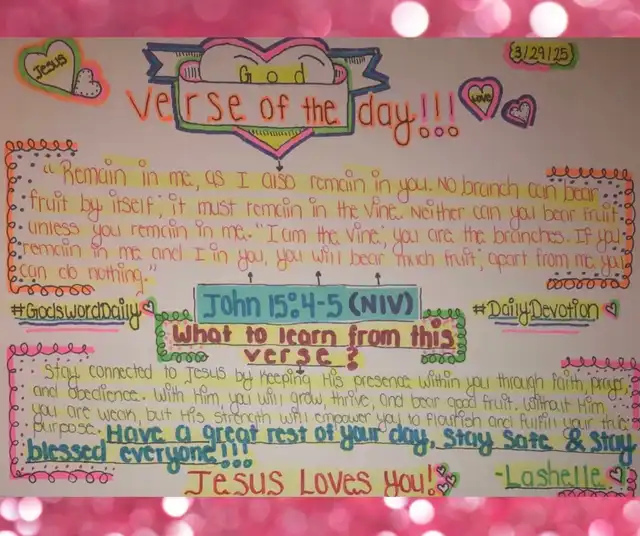 Jesus
3/29/25
God
Verse of the day!!!
Love
"Remain in me, as I also remain in you. No branch can bear
fruit by itself; it must remain in the vine. Neither can you bear fruit
unless you remain in me. "I am the vine; you are the branches. If you
remain in me and I in you, you will bear much fruit; apart from me you
can do nothing."
John 15:4-5 (NIV)
#GodswordDaily
#DailyDevotion
What to learn from this
verse?
Stay connected to Jesus by keeping His presence within you through faith, prayer,
and obedience. With Him, you will grow, thrive, and bear good fruit. Without Him,
you are weak, but His strength will empower you to flourish and fulfill your true
purpose. Have a great rest of your day, Stay Safe & Stay
blessed everyone!!!
Jesus Loves You!
-Lashelle